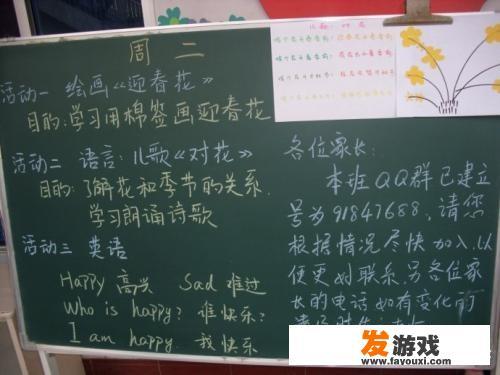 周二
活动一 绘画《迎春花》
目的:学习用棉签画迎春花
活动二 语言:儿歌《对花》
目的:了解花和季节的关系.
学习朗诵诗歌
活动三 英语
Happy 高兴 Sad 难过
Who is happy? 谁快乐?
I am happy. 我快乐
各位家长:
本班QQ群已建立
号为91847688,请您
根据情况尽快加入,以
便更好联系.另各位家
长的电话如有变化的
发游戏
www.fayouxi.com